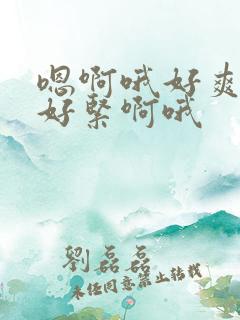 嗯啊哦好爽
好緊啊哦
劉磊磊
未经同意禁止转载